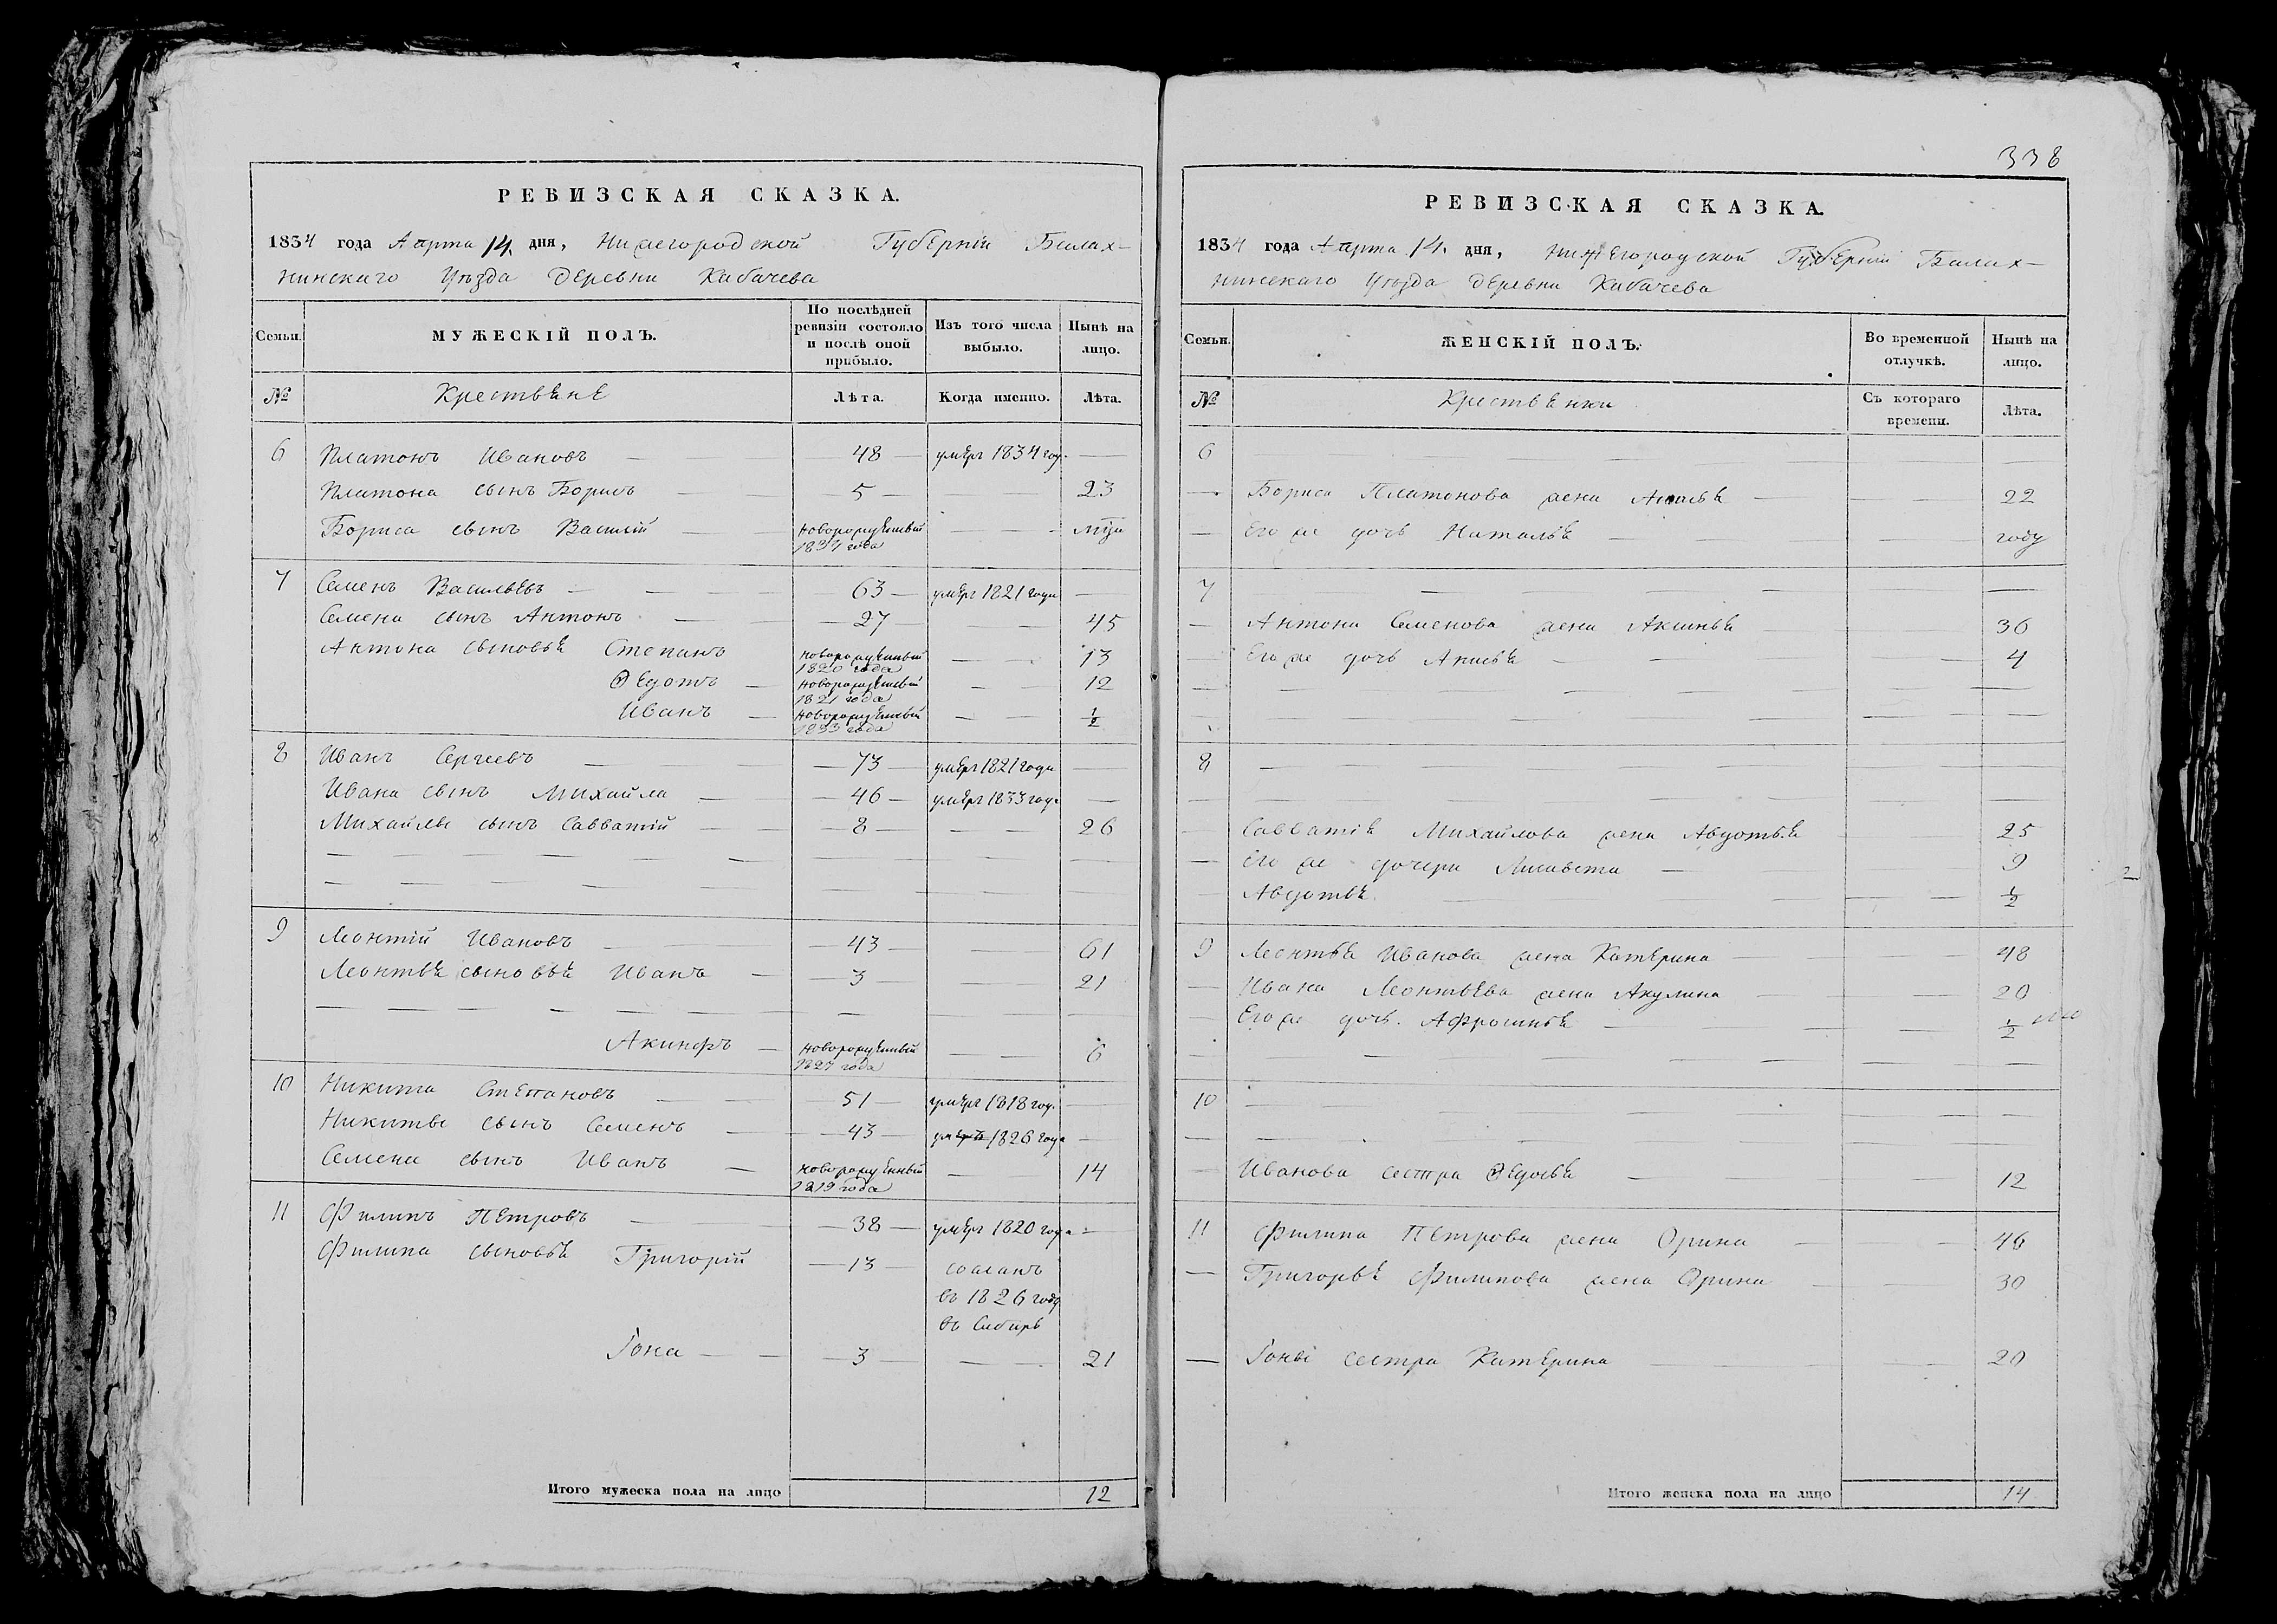 РЕВИЗСКАЯ СКАЗКА.
1834 года Апрѣля 14 дня, Нижегородской Губерніи Балах-
нинскаго Уѣзда деревни Кабачева
Семьи. МУЖЕСКІЙ ПОЛЪ. По послѣдней ревизіи состояло и послѣ оной прибыло. Изъ того числа выбыло. Нынѣ на лицо.
№ Крестьяне Лѣта. Когда именно. Лѣта.
6 Платонъ Ивановъ — 48 — умеръ 1834 год. —
Платона сынъ Борисъ — 5 — 23
Бориса сынъ Василій — новорожденный 1834 года — — мѣсяц
7 Семенъ Васильевъ — — — 63 — умеръ 1821 года —
Семена сынъ Антонъ — — 27 — — 45
Антона сыновья Степанъ новорожденный 1820 года — — 13
Ѳедотъ — новорожденный 1821 года — — 12
Иванъ — новорожденный 1833 года — — ½
8 Иванъ Сергеевъ — — — 73 — умеръ 1821 года —
Ивана сынъ Михайла — — 46 — умеръ 1833 года —
Михайлы сынъ Савватій — — 8 — — — 26
9 Леонтій Ивановъ — — 43 — — — 61
Леонтья сыновья Иванъ — — 3 — — — 21
Акинфъ — новорожденный 1827 года — — 6
10 Никита Степановъ — — — 51 — умеръ 1818 год. —
Никиты сынъ Семенъ — — 43 — умеръ 1826 года —
Семена сынъ Иванъ — новорожденный 1819 года — — 14
11 Филипъ Петровъ — — — 38 — умеръ 1820 года —
Филипа сыновья Григорій — 13 — сосланъ
въ 1826 году
въ Сибирь
Іона — — — 3 — — — 21
Итого мужеска пола на лицо 12
338
РЕВИЗСКАЯ СКАЗКА.
1834 года Апрѣля 14 дня, Нижегородской Губерніи Балах-
нинскаго Уѣзда деревни Кабачева
Семьи. ЖЕНСКІЙ ПОЛЪ. Во временной отлучкѣ. Нынѣ на лицо.
№ Крестьянки Съ котораго времени. Лѣта.
6 — — — —
— Бориса Платонова жена — — — 22
— Его же дочь Наталья — — году
7 — — — —
— Антона Семенова жена Аксинья — — 36
— Его же дочь Анисья — — — 4
8 — — — —
Савватія Михайлова жена Авдотья 25
— Его же дочери Лисавета — — 9
— Авдотья — — — ½
9 Леонтья Иванова жена Катерина — — 48
— Ивана Леонтьева жена Акулина — — 20
— Его же дочь Афросинья — — ½
10 — — — —
— Иванова сестра Ѳедосья — — 12
11 Филипа Петрова жена Орина — — 46
— Григорья Филипова жена Орина — — 30
— Іоны сестра Катерина — 20
Итого женска пола на лицо 14